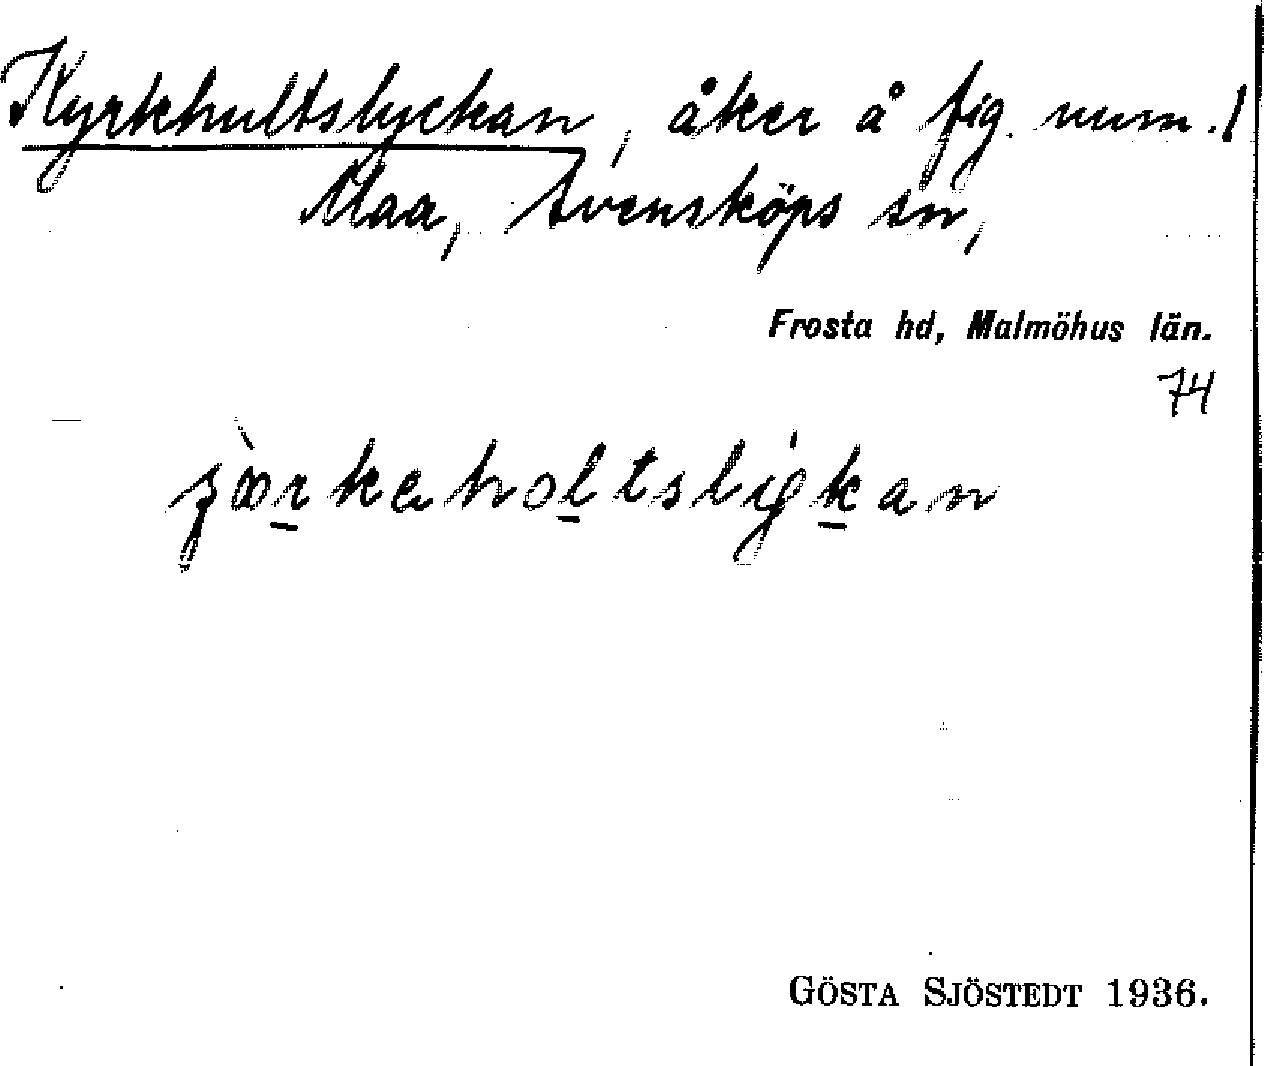 Kyrkhultslyckan, åker å fig. num. 1
Maa, Svensköps sn,
Frosta hd, Malmöhus län.
74
GÖSTA SJÖSTEDT 1936.